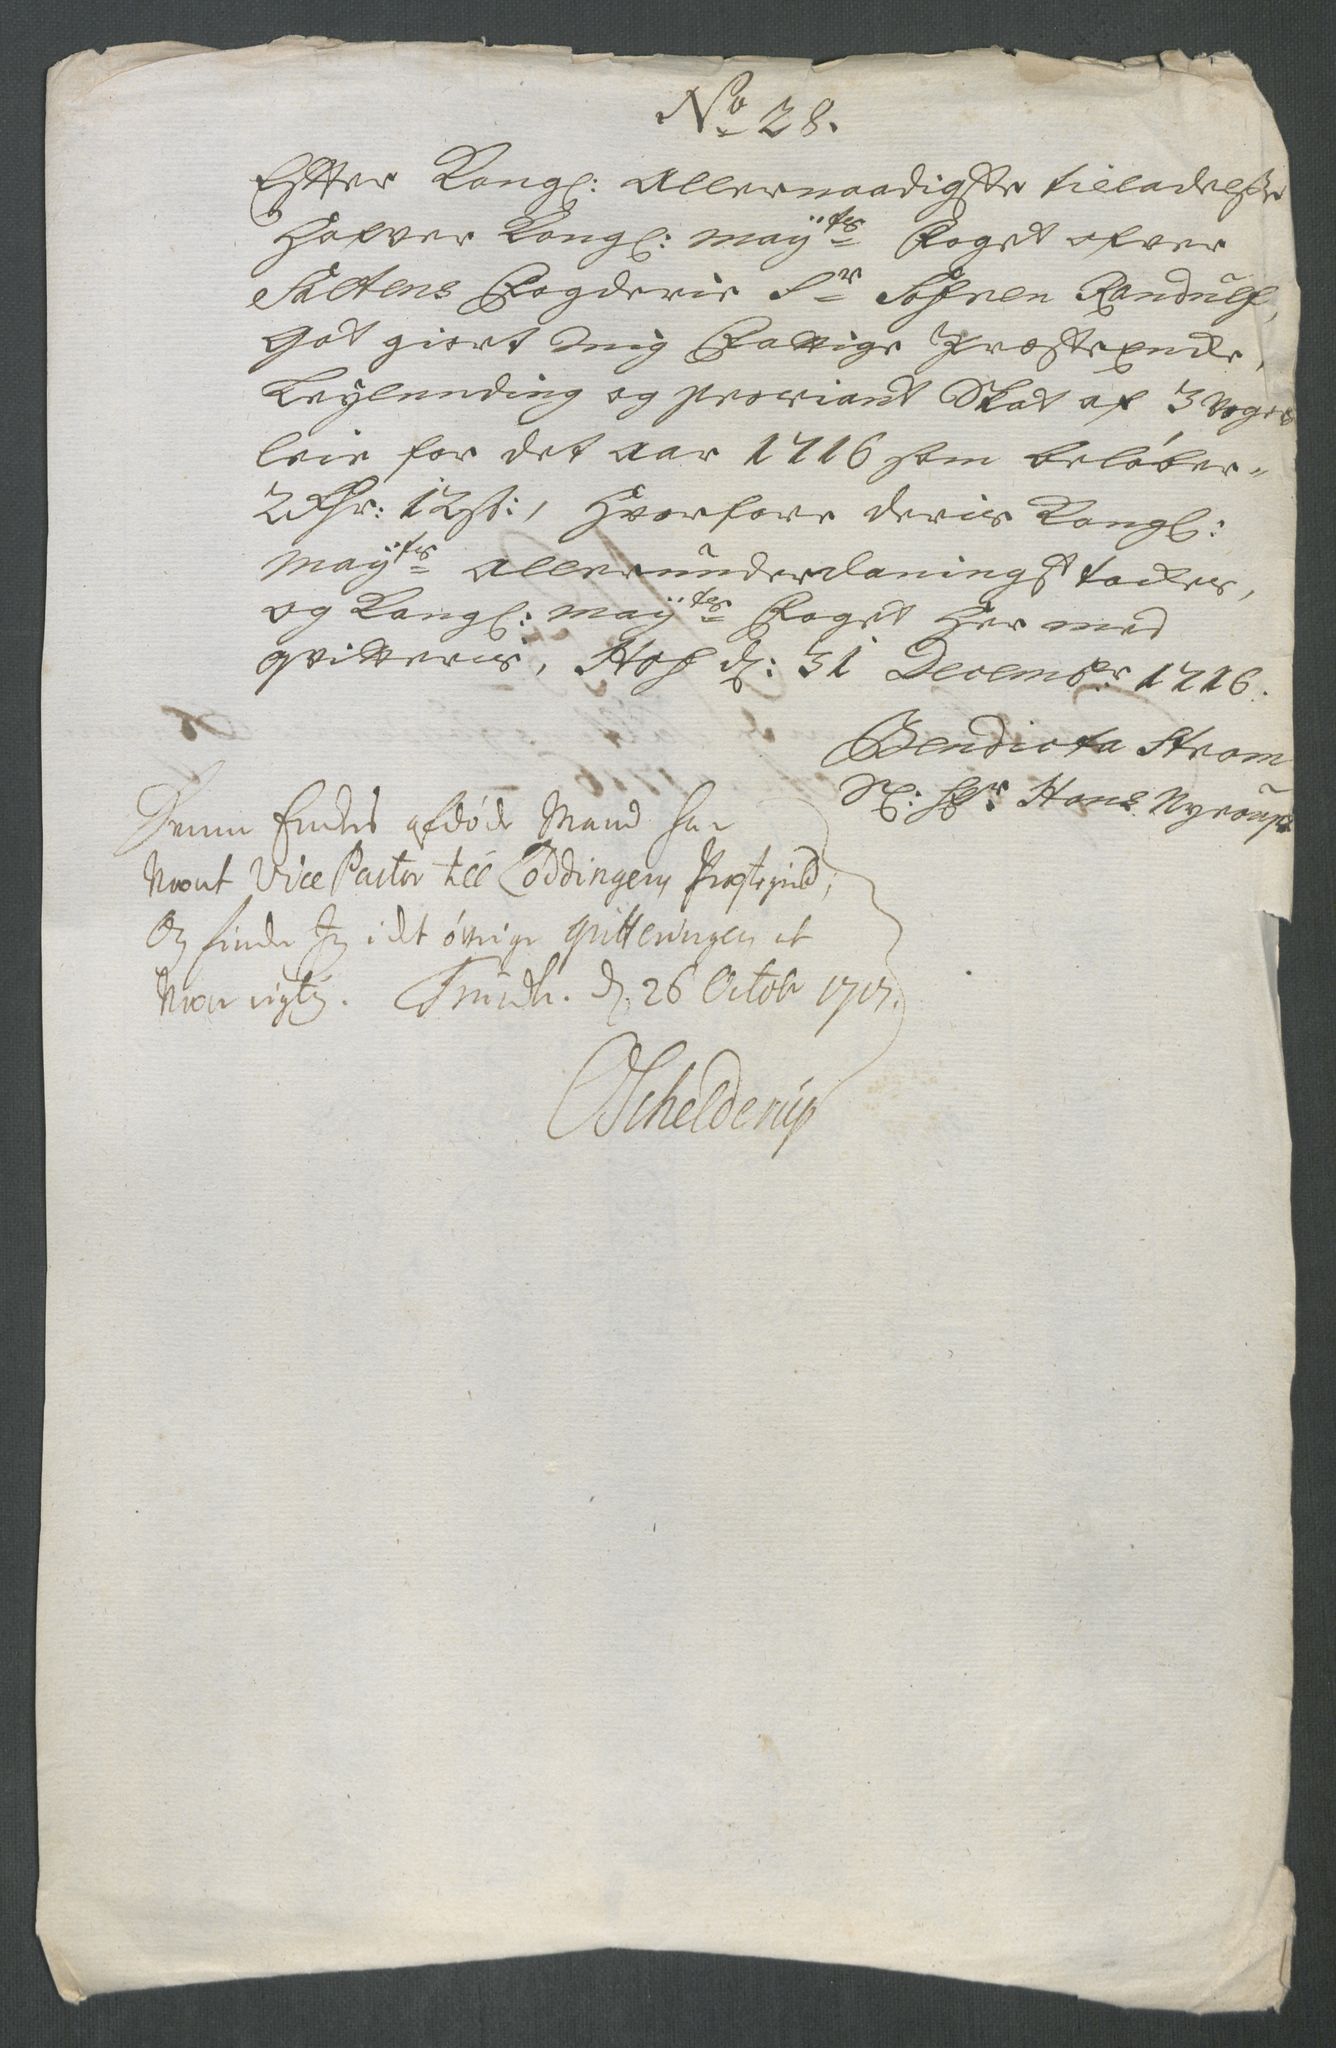 No 28.
Efter Kongl: Allernaadigste tilladelße
Hafver Kongl: Mayts Foget ofver
Saltens Fogderie Sr Søfren Randulf,
Got giort mig Fattige Præste Encke,
Leylending og proviant Skat af 3 Woger
leie for det Aar 1716 som beløber
2 Rhr: 12 s:, Hvorfore deris Kongl:
Mayts allerunderdaningst tackes,
og Kongl: Mayts Foget Her med
qvitteris, Hof d: 31 Decembr 1716.
Bendicta Strøm
Sl: Hr Hans Nyroups
Denne Enckes afdøde Mand har
Wæret Vice Pastor till Loddingens Præstegield;
Og finder Jeg i det øfrige qvitteringen at
Wære rigtig. Trundh. d. 26 Octobr 1717.
OSchelderup